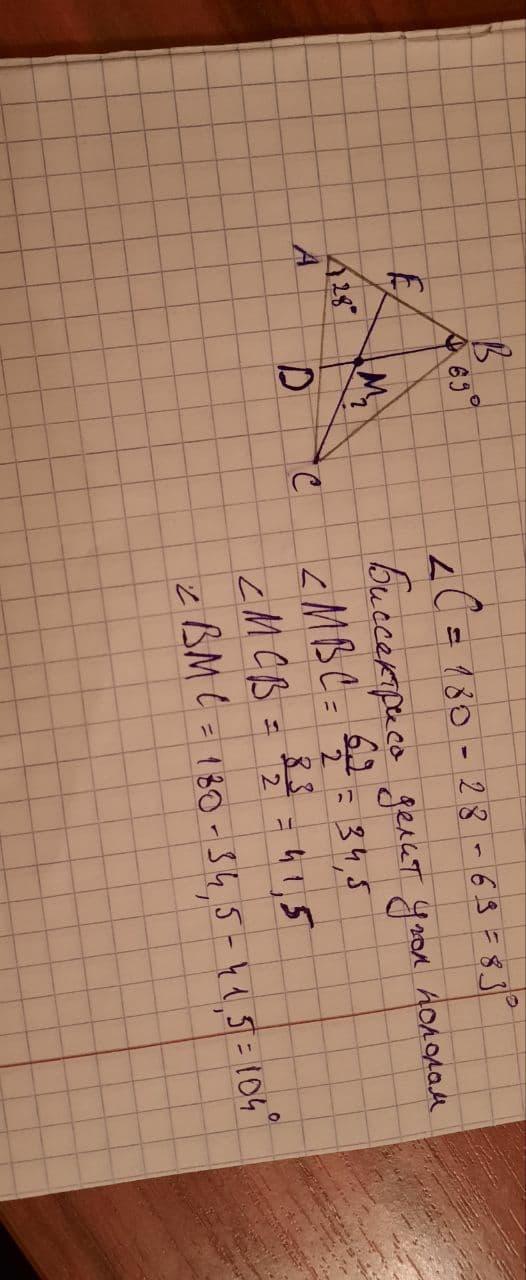 B
69°
E
A
28°
M
?
D
C
∠C = 180 - 28 - 69 = 83°
Биссектриса делит угол пополам
∠MBC = 69/2 = 34,5
∠MCB = 83/2 = 41,5
∠BMC = 180 - 34,5 - 41,5 = 104°